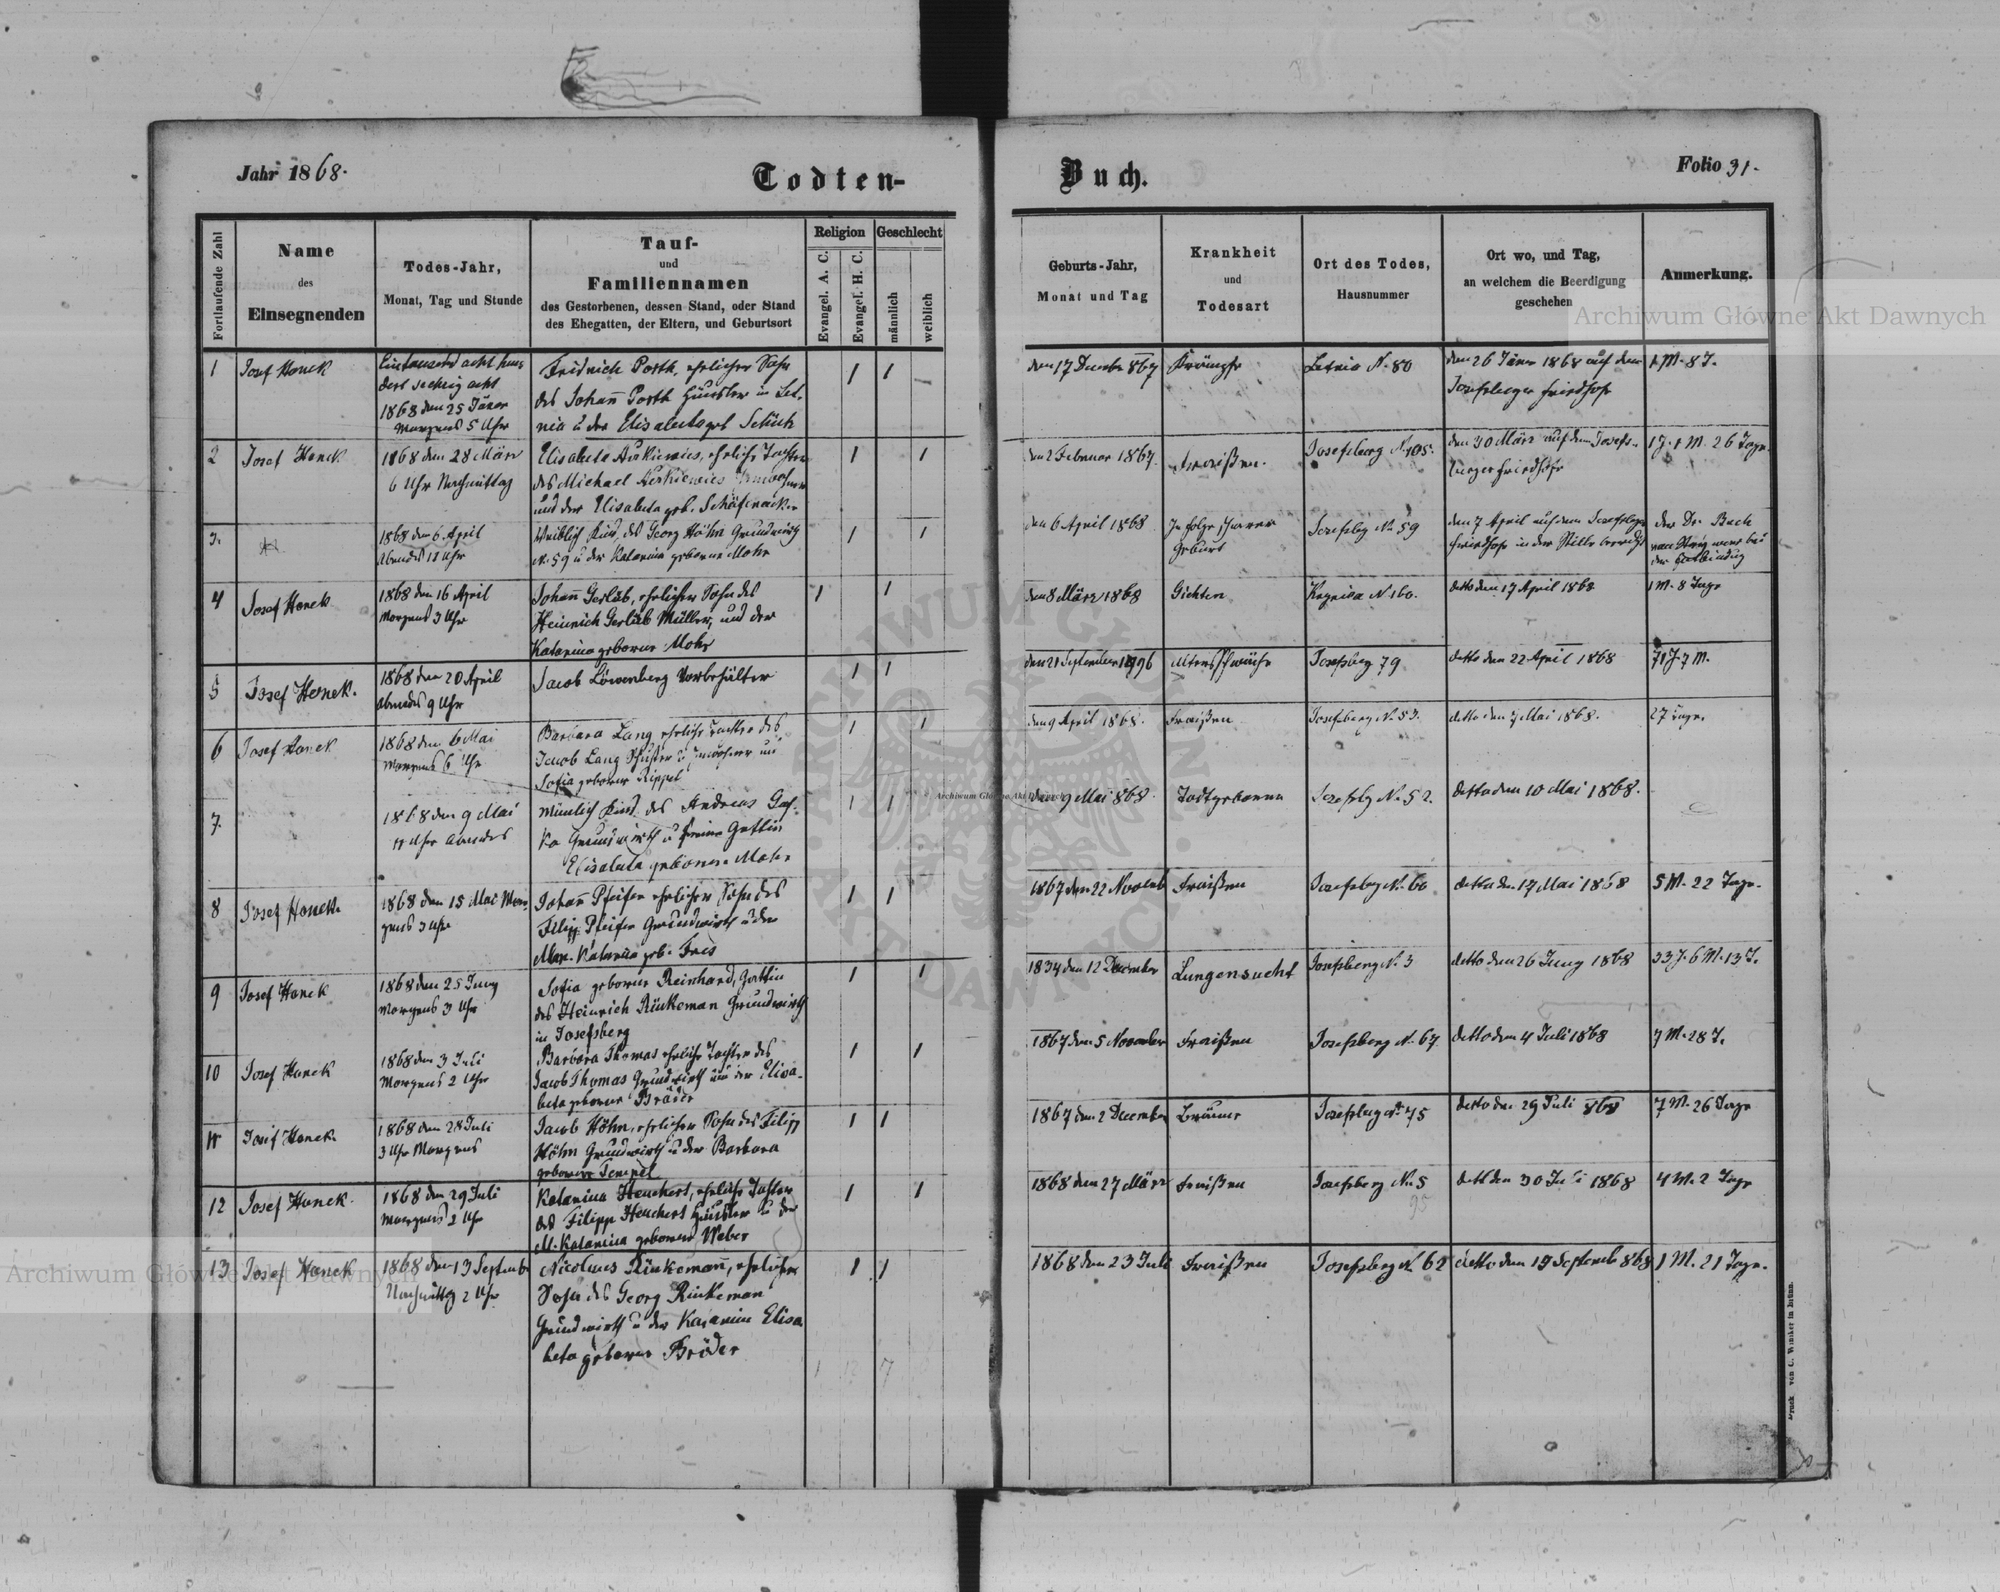 Jahr 1868.
Todten-
Buch.
Folio 31.
Fortlaufende Zahl
Name
des
Einsegnenden
Todes-Jahr,
Monat, Tag und Stunde
Tauf-
und
Familiennamen
des Gestorbenen, dessen Stand, oder Stand
des Ehegatten, der Eltern, und Geburtsort
Religion
Evangel. A. C.
Evangel. H. C.
Geschlecht
männlich
weiblich
Geburts-Jahr,
Monat und Tag
Krankheit
und
Todesart
Ort des Todes,
Hausnummer
Ort wo, und Tag,
an welchem die Beerdigung
geschehen
Anmerkung.
1
Josef Honek
Eintausend acht hun
dert sechzig acht
1868 den 25 Jäner
Morgens 5 Uhr
Fridrich Porth, ehelicher Sohn
des Johann Porth Häusler in Let.
nia u der Elisabeta geb Schick
1
1
den 17 Decembr 867
Krämpfe
Letnia N. 80
den 26 Jäner 1868 auf dem
Josefsberger Friedhofe
1 M. 8 T.
2
Josef Honek
1868 den 28 März
6 Uhr Nachmittag
Elisabeta, eheliche Tochter
des Michael
und der Elisabeta geb.
1
1
den 2 Februar 1867.
Fraißen.
Josefsberg N. 105.
den 30 März auf dem Josefs-
berger Friedhofe
1 J. 1 M. 26 Tage.
3.
1868 den 6 April
Abends 11 Uhr
Weiblich Kind, des Georg Höhn Grundwirth
N. 59 u der Katarina geborne Mohr
1
1
den 6 April 1868
In folge schwerer
Geburt
Josefsbg No 59
den 7 April auf dem Josefsbger
Friedhofe in der Stille beerdigt
der Dr. Bach
von Stryj war bei
der Entbindung
4
Josef Honek
1868 den 16 April
Morgens 3 Uhr
Johann Gerlib, ehelicher Sohn des
Heinrich Gerlib Müller, und der
Katarina geborne Mohr
1
1
den 8 März 1868
Gichter
N 160.
detto den 17 April 1868
1 M. 8 Tage
5
Josef Honek.
1868 den 20 April
Abends 9 Uhr
Jacob Löwenberg Vorbehälter
1
1
den 21 September 1796
Altersschwäche
Josefsberg 79
detto den 22 April 1868
71 J. 7 M.
6
Josef Honek
1868 den 6 Mai
Morgens 6 Uhr
Barbara Lang eheliche Tochter des
Jacob Lang Schuster u Inwohner u
Sofia geborne Rippel
1
1
den 9 April 1868.
Fraißen
Josefsberg N. 53.
detto den 7 Mai 1868.
27 Tage.
7.
1868 den 9 Mai
11 Uhr Abends
Mänlich Kind des Andreas Gas-
ka Grundwirth u seiner Gattin
Elisabeta geborene Mohr
1
1
den 9 Mai 868.
Todtgeboren
Josefsbg No 52.
detto den 10 Mai 1868.
8
Josef Honek
1868 den 15 Mai Mor
gens 3 Uhr
Johann Pfeifer ehelicher Sohn des
Filipp Pfeifer Grundwirth u der
Mar. Katarina geb. Fries
1
1
1867 den 22 Novemb
Fraißen
Josefsbg No 60
detto den 17 Mai 1868
5 M. 22 Tage.
9
Josef Honek
1868 den 25 Juny
Morgens 3 Uhr
Sofia geborne Reinhard, Gattin
des Heinrich Rinkeman Grundwirth
in Josefsberg
1
1
1834 den 12 December
Lungensucht
Josefsberg N. 3
detto den 26 Juny 1868
33 J. 6 M. 13 T.
10
Josef Honek
1868 den 3 Juli
Morgens 2 Uhr
Barbara Thomas eheliche Tochter des
Jacob Thomas Grundwirth und der Elisa-
beta geborne Bräder
1
1
1867 den 5 November
Fraißen
Josefsberg N. 67
detto den 4 Juli 1868
7 M. 28 T.
11
Josef Honek.
1868 den 28 Juli
3 Uhr Morgens
Jacob Höhn, ehelicher Sohn des Filipp
Höhn Grundwirth u der Barbara
geborene Tempel
1
1
1867 den 2 December
Bräune
Josefsberg N. 75
detto den 29 Juli 868
7 M. 26 Tage
12
Josef Honek.
1868 den 29 Juli
Morgens 2 Uhr
Katarina Heuchert, eheliche Tochter
des Filipp Heuchert Häusler u der
M. Katarina geborene Weber
1
1
1868 den 27 März
Fraißen
Josefsberg N. 5
95
detto den 30 Juli 1868
4 M. 2 Tage
13
Josef Honek
1868 den 13 Septemb
Nachmittag 2 Uhr
Nicolaus Rinkemann, ehelicher
Sohn des Georg Rinkeman
Grundwirth u der Katarina Elisa
beta geborne Bröder
1
1
1868 den 23 Juli
Fraißen
Josefsberg N. 62
detto den 15 Septemb 868
1 M. 21 Tage.
1 12 7
Druck von C. Winiker in Brünn.
Archiwum Główne Akt Dawnych
Archiwum Główne Akt Dawnych
Archiwum Główne Akt Dawnych
ARCHIWUM GŁÓWNE
AKT DAWNYCH